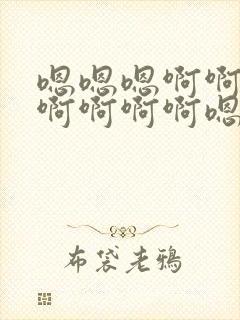 嗯嗯嗯啊啊
啊啊啊啊嗯
布袋老鴉